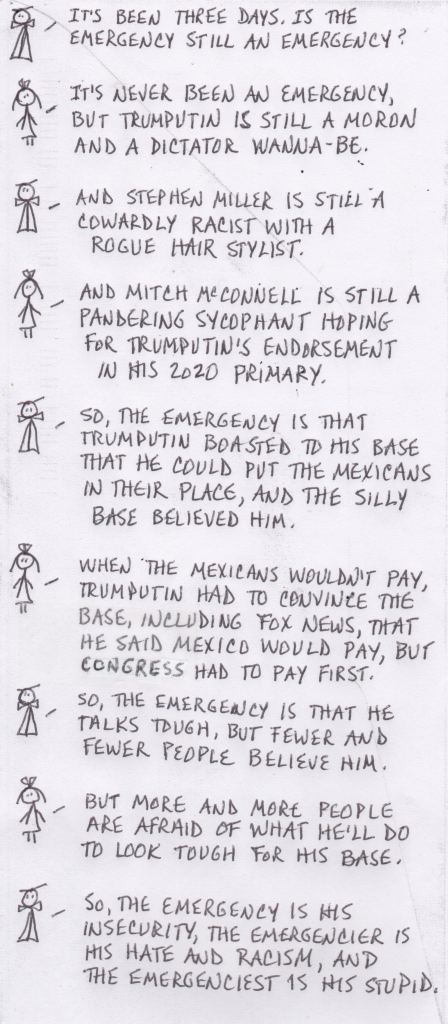 IT'S BEEN THREE DAYS. IS THE
EMERGENCY STILL AN EMERGENCY?
IT'S NEVER BEEN AN EMERGENCY,
BUT TRUMPUTIN IS STILL A MORON
AND A DICTATOR WANNA-BE.
AND STEPHEN MILLER IS STILL A
COWARDLY RACIST WITH A
ROGUE HAIR STYLIST.
AND MITCH McCONNELL IS STILL A
PANDERING SYCOPHANT HOPING
FOR TRUMPUTIN'S ENDORSEMENT
IN HIS 2020 PRIMARY.
SO, THE EMERGENCY IS THAT
TRUMPUTIN BOASTED TO HIS BASE
THAT HE COULD PUT THE MEXICANS
IN THEIR PLACE, AND THE SILLY
BASE BELIEVED HIM.
WHEN THE MEXICANS WOULDN'T PAY,
TRUMPUTIN HAD TO CONVINCE THE
BASE, INCLUDING FOX NEWS, THAT
HE SAID MEXICO WOULD PAY, BUT
CONGRESS HAD TO PAY FIRST.
SO, THE EMERGENCY IS THAT HE
TALKS TOUGH, BUT FEWER AND
FEWER PEOPLE BELIEVE HIM.
BUT MORE AND MORE PEOPLE
ARE AFRAID OF WHAT HE'LL DO
TO LOOK TOUGH FOR HIS BASE.
SO, THE EMERGENCY IS HIS
INSECURITY, THE EMERGENCIER IS
HIS HATE AND RACISM, AND
THE EMERGENCIEST IS HIS STUPID.